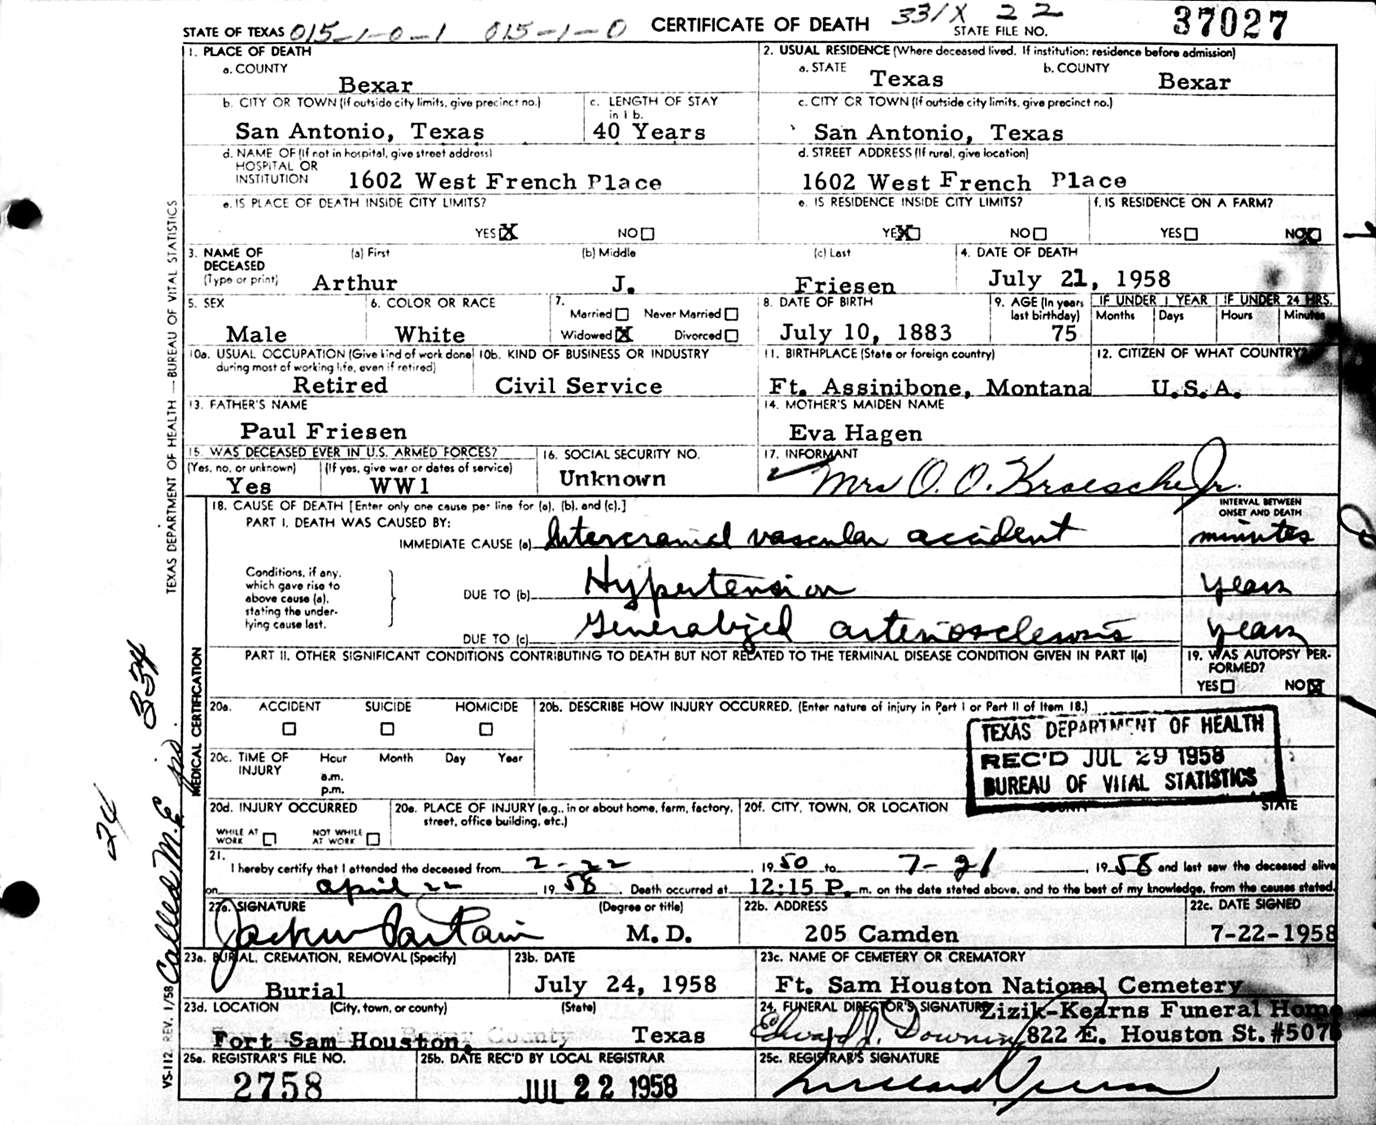 STATE OF TEXAS 015-1-0-1 015-1-0 CERTIFICATE OF DEATH 331X 22 STATE FILE NO. 37027
1. PLACE OF DEATH
a. COUNTY
Bexar
2. USUAL RESIDENCE (Where deceased lived. If institution: residence before admission)
a. STATE Texas b. COUNTY Bexar
b. CITY OR TOWN (If outside city limits, give precinct no.)
San Antonio, Texas
c. LENGTH OF STAY in 1 b.
40 Years
c. CITY OR TOWN (If outside city limits, give precinct no.)
San Antonio, Texas
d. NAME OF (If not in hospital, give street address)
HOSPITAL OR
INSTITUTION 1602 West French Place
d. STREET ADDRESS (If rural, give location)
1602 West French Place
e. IS PLACE OF DEATH INSIDE CITY LIMITS?
YES X NO
e. IS RESIDENCE INSIDE CITY LIMITS?
YES X NO
f. IS RESIDENCE ON A FARM?
YES NO X
3. NAME OF DECEASED (Type or print)
(a) First (b) Middle (c) Last
Arthur J. Friesen
4. DATE OF DEATH
July 21, 1958
5. SEX
Male
6. COLOR OR RACE
White
7.
Married Never Married
Widowed X Divorced
8. DATE OF BIRTH
July 10, 1883
9. AGE (In years last birthday)
75
IF UNDER 1 YEAR
Months Days
IF UNDER 24 HRS.
Hours Minutes
10a. USUAL OCCUPATION (Give kind of work done during most of working life, even if retired)
Retired
10b. KIND OF BUSINESS OR INDUSTRY
Civil Service
11. BIRTHPLACE (State or foreign country)
Ft. Assinibone, Montana
12. CITIZEN OF WHAT COUNTRY?
U.S.A.
13. FATHER'S NAME
Paul Friesen
14. MOTHER'S MAIDEN NAME
Eva Hagen
15. WAS DECEASED EVER IN U.S. ARMED FORCES?
(Yes, no, or unknown) (If yes, give war or dates of service)
Yes WW1
16. SOCIAL SECURITY NO.
Unknown
17. INFORMANT
Mrs O. O. Kroesche Jr.
18. CAUSE OF DEATH [Enter only one cause per line for (a), (b), and (c).]
INTERVAL BETWEEN ONSET AND DEATH
PART I. DEATH WAS CAUSED BY:
IMMEDIATE CAUSE (a) Intercranial vascular accident minutes
Conditions, if any, which gave rise to above cause (a), stating the underlying cause last.
DUE TO (b) Hypertension years
DUE TO (c) Generalized arteriosclerosis years
PART II. OTHER SIGNIFICANT CONDITIONS CONTRIBUTING TO DEATH BUT NOT RELATED TO THE TERMINAL DISEASE CONDITION GIVEN IN PART I(a)
19. WAS AUTOPSY PERFORMED?
YES NO X
20a. ACCIDENT SUICIDE HOMICIDE
20b. DESCRIBE HOW INJURY OCCURRED. (Enter nature of injury in Part I or Part II of Item 18.)
TEXAS DEPARTMENT OF HEALTH
REC'D JUL 29 1958
BUREAU OF VITAL STATISTICS
20c. TIME OF INJURY Hour Month Day Year
a.m.
p.m.
20d. INJURY OCCURRED
WHILE AT WORK NOT WHILE AT WORK
20e. PLACE OF INJURY (e.g., in or about home, farm, factory, street, office building, etc.)
20f. CITY, TOWN, OR LOCATION COUNTY STATE
21. I hereby certify that I attended the deceased from 2-22 1950 to 7-21, 1958 and last saw the deceased alive
on april 22 1958. Death occurred at 12:15 P. m. on the date stated above, and to the best of my knowledge, from the causes stated.
22a. SIGNATURE (Degree or title)
Jack W Partain M. D.
22b. ADDRESS
205 Camden
22c. DATE SIGNED
7-22-1958
23a. BURIAL, CREMATION, REMOVAL (Specify)
Burial
23b. DATE
July 24, 1958
23c. NAME OF CEMETERY OR CREMATORY
Ft. Sam Houston National Cemetery
23d. LOCATION (City, town, or county) (State)
Fort Sam Houston, Texas
24. FUNERAL DIRECTOR'S SIGNATURE Zizik-Kearns Funeral Home
Edward J. Downing 822 E. Houston St. #5076
25a. REGISTRAR'S FILE NO.
2758
25b. DATE REC'D BY LOCAL REGISTRAR
JUL 22 1958
25c. REGISTRAR'S SIGNATURE
TEXAS DEPARTMENT OF HEALTH — BUREAU OF VITAL STATISTICS
MEDICAL CERTIFICATION
VS-112 REV. 1/58
24 334
Called M.E.